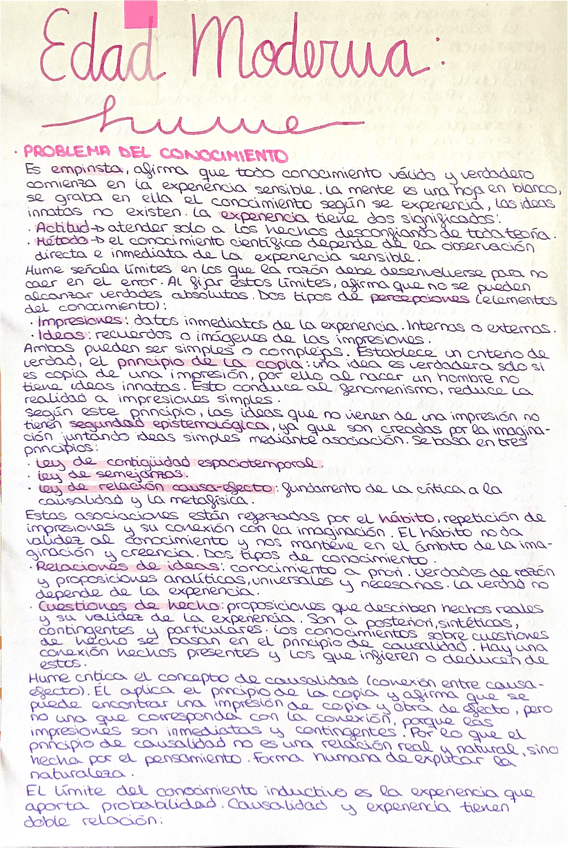 Edad Moderna:
hume
· PROBLEMA DEL CONOCIMIENTO
Es empirista, afirma que todo conocimiento válido y verdadero
comienza en la experiencia sensible. La mente es una hoja en blanco,
se graba en ella el conocimiento según se experiencia, las ideas
innatas no existen. La experiencia tiene dos significados:
· Actitud → atender solo a los hechos desconfiando de toda teoría.
· Método → el conocimiento científico depende de la observación
directa e inmediata de la experiencia sensible.
Hume señala límites en los que la razón debe desenvolverse para no
caer en el error. Al fijar estos límites, afirma que no se pueden
alcanzar verdades absolutas. Dos tipos de percepciones (elementos
del conocimiento):
· Impresiones: datos inmediatos de la experiencia. Internas o externas.
· Ideas: recuerdos o imágenes de las impresiones.
Ambas pueden ser simples o complejas. Establece un criterio de
verdad, el principio de la copia: una idea es verdadera solo si
es copia de una impresión, por ello al nacer un hombre no
tiene ideas innatas. Esto conduce al fenomenismo, reduce la
realidad a impresiones simples.
Según este principio, las ideas que no vienen de una impresión no
tienen seguridad epistemológica, ya que son creadas por la imagina-
ción juntando ideas simples mediante asociación. Se basa en tres
principios:
· Ley de contigüidad espaciotemporal.
· Ley de semejanzas.
· Ley de relación causa-efecto: fundamento de la crítica a la
causalidad y la metafísica.
Estas asociaciones están reforzadas por el hábito, repetición de
impresiones y su conexión con la imaginación. El hábito no da
validez al conocimiento y nos mantiene en el ámbito de la ima-
ginación y creencia. Dos tipos de conocimiento.
· Relaciones de ideas: conocimiento a priori. Verdades de razón
y proposiciones analíticas, universales y necesarias. La verdad no
depende de la experiencia.
· Cuestiones de hecho: proposiciones que describen hechos reales
y su validez de la experiencia. Son a posteriori, sintéticas,
contingentes y particulares. Los conocimientos sobre cuestiones
de hecho se basan en el principio de causalidad. Hay una
conexión hechos presentes y los que infieren o deducen de
estos.
Hume critica el concepto de causalidad (conexión entre causa-
efecto). Él aplica el principio de la copia y afirma que se
puede encontrar una impresión de copia y otra de efecto, pero
no una que corresponda con la conexión, porque las
impresiones son inmediatas y contingentes. Por lo que el
principio de causalidad no es una relación real y natural, sino
hecha por el pensamiento. Forma humana de explicar la
naturaleza.
El límite del conocimiento inductivo es la experiencia que
aporta probabilidad. Causalidad y experiencia tienen
doble relación: